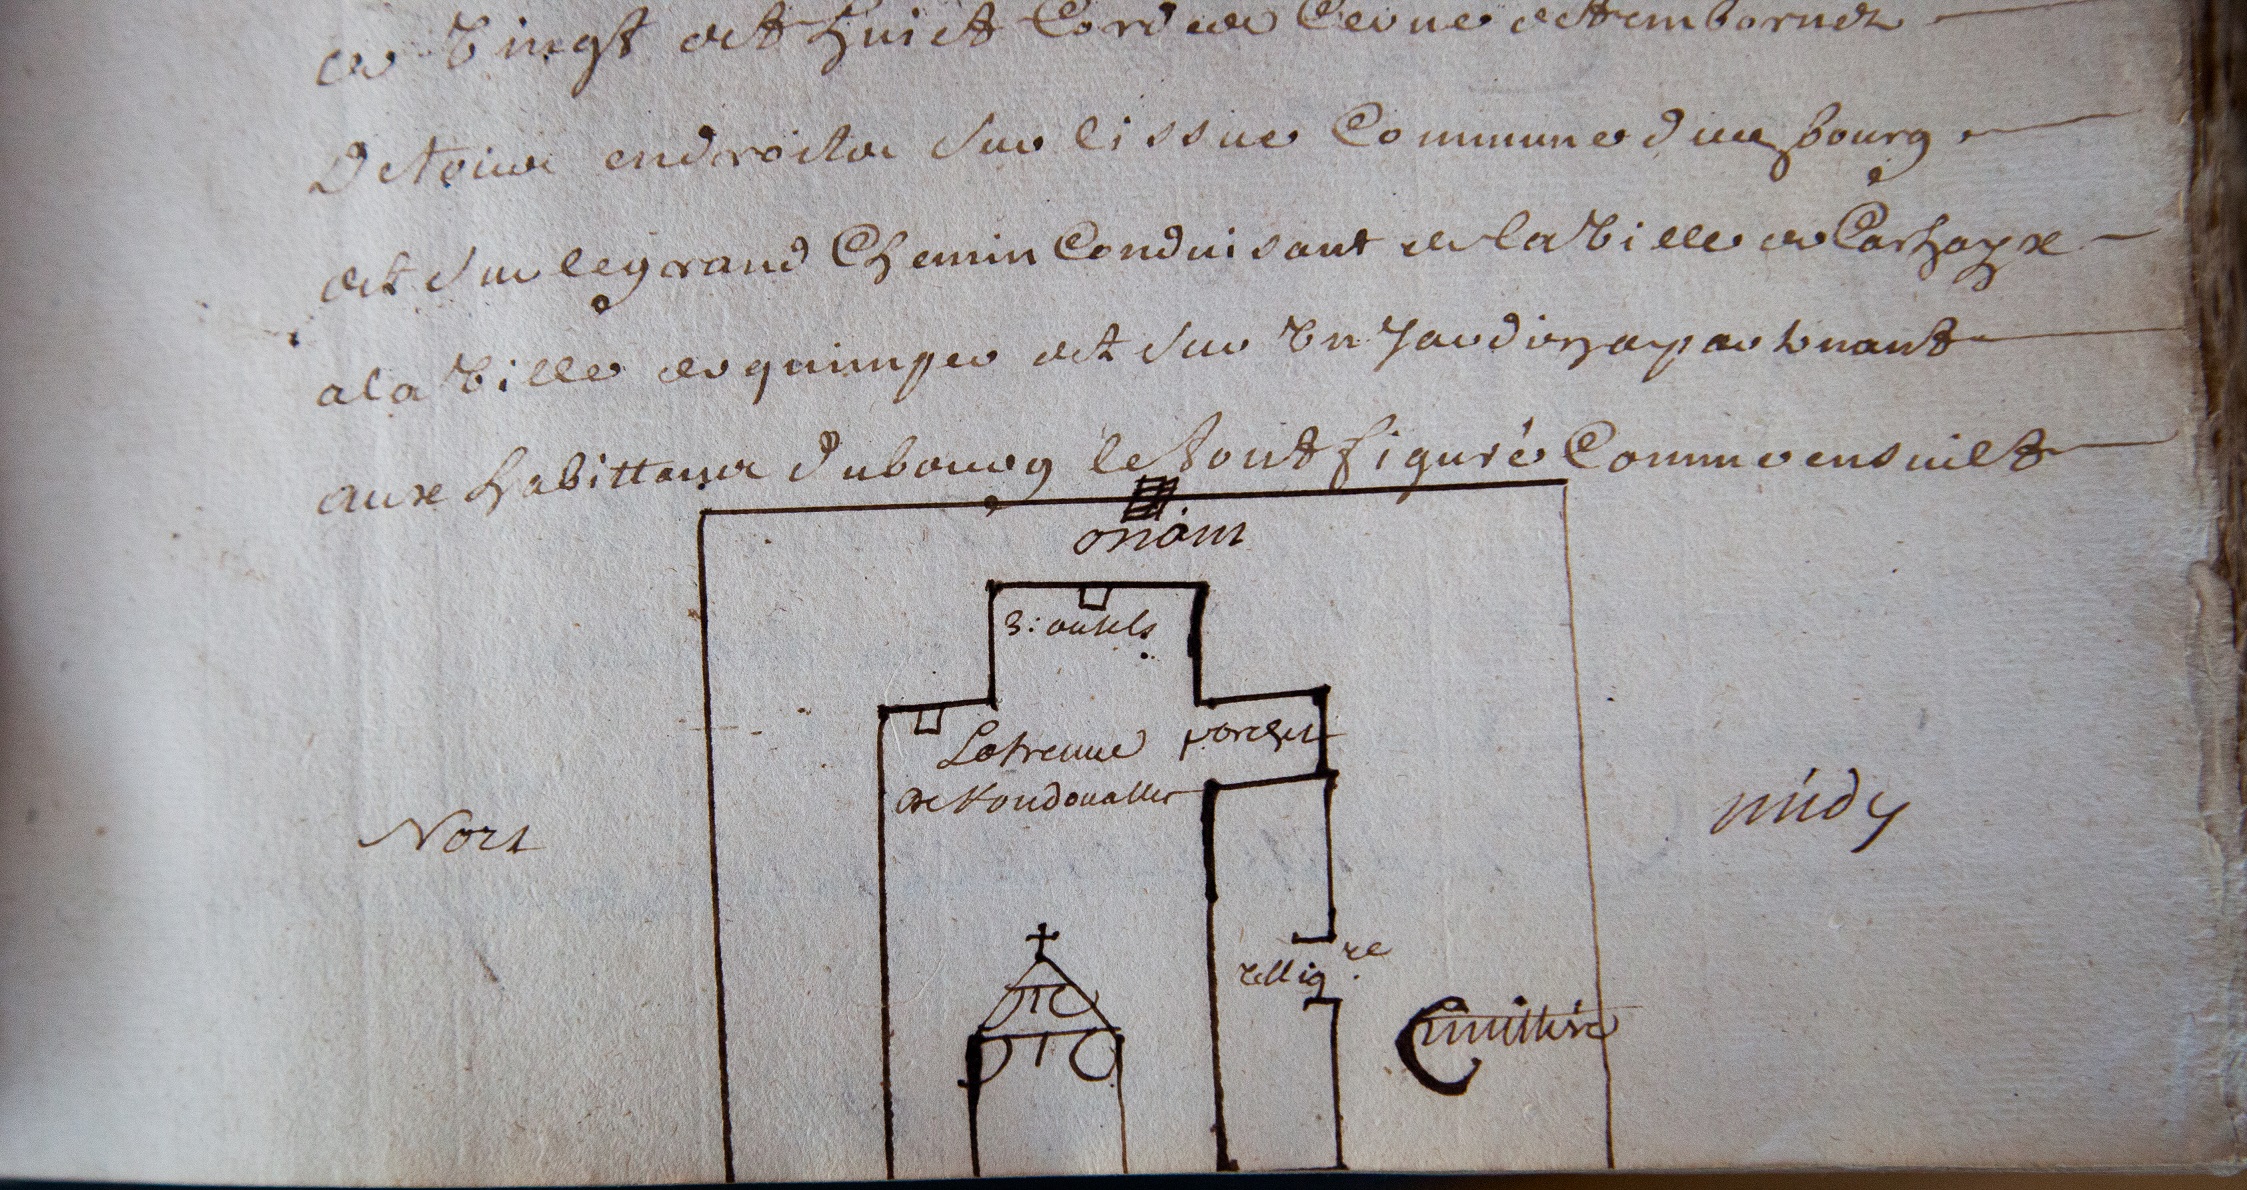 de Vingt et huict Cordes
endroites sur lissue Commune dud bourg
et sur le grand Chemin Conduisant de la Ville de Carhayx
a la Ville de quimper et sur Vn Jardin apartenant
aux habittans du bourg le tout figuré Comme ensuilt
oriant
3: autels
Latrenue porchet
de Kondouallec
Nort
midy
relliq re
Cimittire